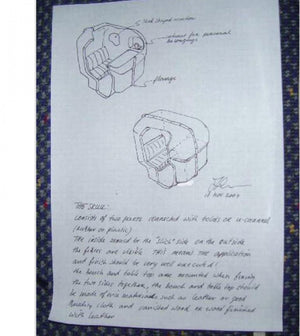 stick shaped window
storage for personal
belongings
flange
11 NOV 2009
THE SKULL:
consists of two plates connected with bolts or u-channel
(rubber or plastic)
The inside should be the "slick" side on the outside
the fibres are visible this means the application
and finish should be very well executed!
the bench and table top are mounted when fixing
the two sides together, the bench and table top should
be made of nice materials such as leather or good
quality cloth and varnished wood or wood finished
with leather